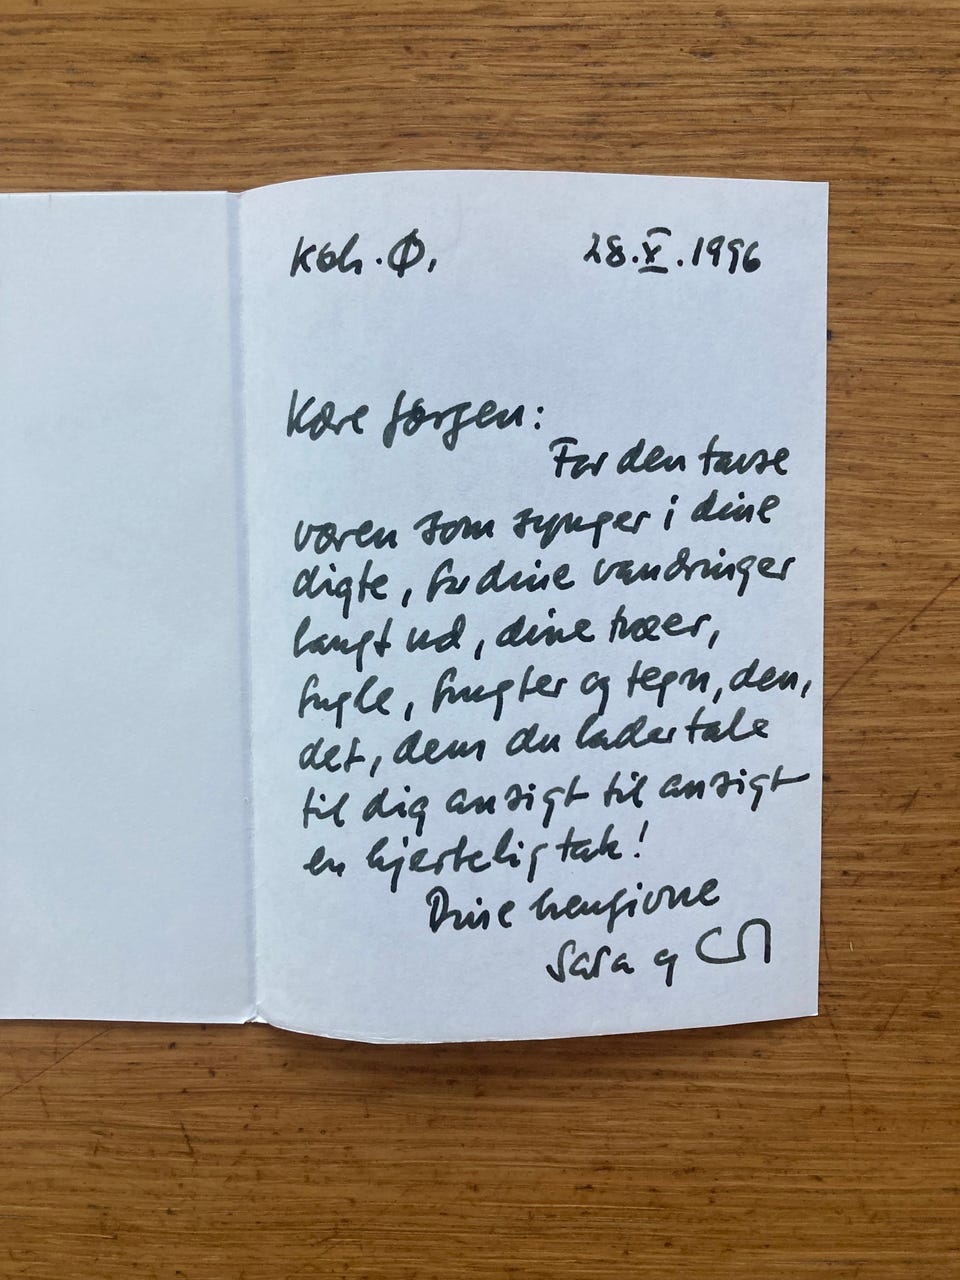 Kbh. Ø.
28.X.1996
Kære Jørgen:
For den tavse
væren som synger i dine
digte, for dine vandringer
langt ud, dine træer,
fugle, frugter og tegn, den,
det, dem du lader tale
til dig ansigt til ansigt
en hjertelig tak!
Dine hengivne
Sasa og